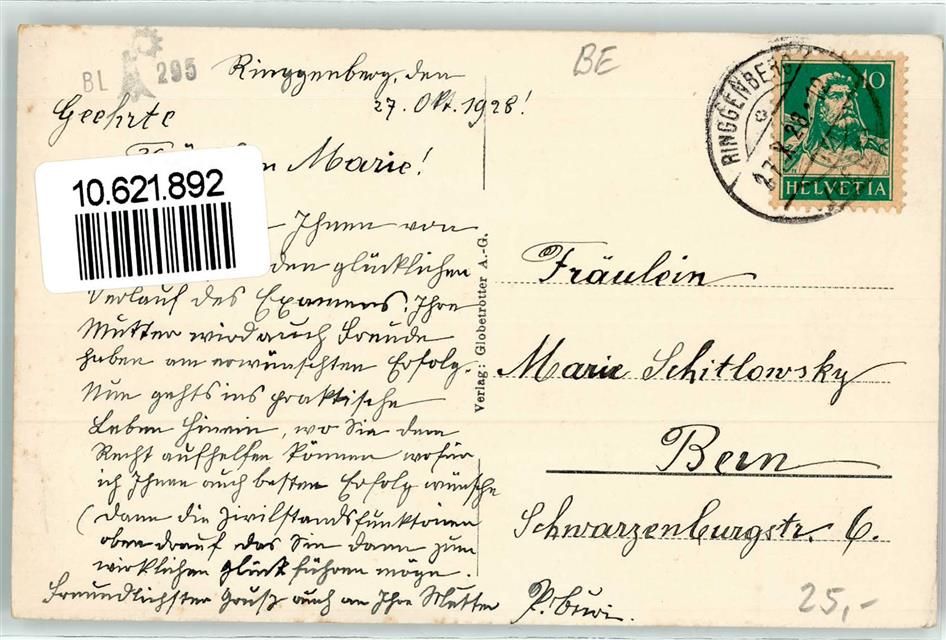 BL 295
BE
Ringgenberg, den
27. Okt. 1928!
Geehrte
Marie!
10.621.892
Ihnen von
den glücklichen
Verlauf des Examens, Ihre
Mutter wird auch Freude
haben am erwünschten Erfolg.
Nun gehts ins praktische
Leben hinein, wo Sie dem
Recht aufhelfen können wofür
ich Ihnen auch besten Erfolg wünsche
(dann die Zivilstandsfunktionen
oben drauf das Sie dann zum
wirklichen Glück führen möge.
Freundlichster Gruß auch an Ihre Mutter
Verlag: Globetrotter A.-G.
RINGGENBERG
27.X.28.10
10
HELVETIA
Fräulein
Marie Schitlowsky
Bern
Schwarzenburgstr. 6.
25,-